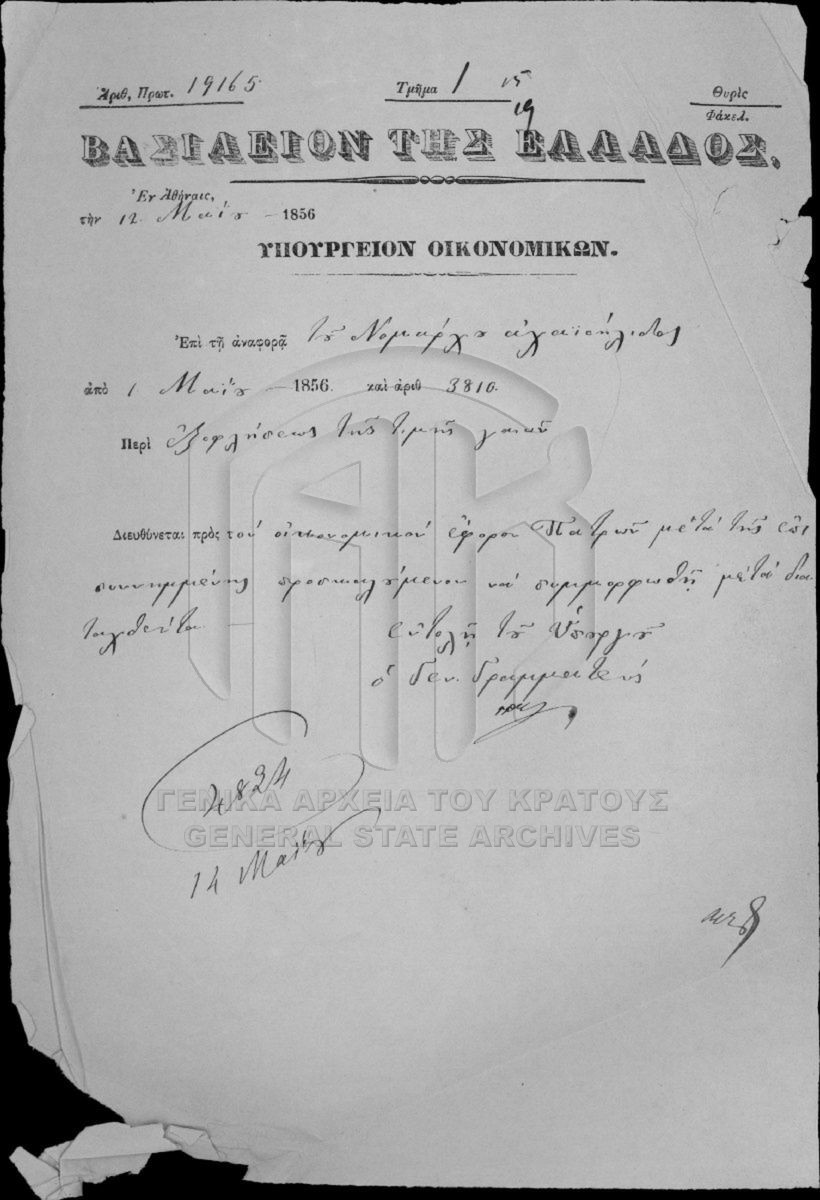 Ἀριθ. Πρωτ. 19165 Τμῆμα 1 15 Θυρὶς
19 Φάκελ.
ΒΑΣΙΛΕΙΟΝ ΤΗΣ ΕΛΛΑΔΟΣ,
Ἐν Ἀθήναις,
τὴν 12 Μαΐου - 1856
ΥΠΟΥΡΓΕΙΟΝ ΟΙΚΟΝΟΜΙΚΩΝ.
Ἐπὶ τῇ ἀναφορᾷ τοῦ Νομάρχου Ἀχαϊοήλιδος
ἀπὸ 1 Μαΐου - 1856. καὶ ἀριθ 3810.
Περὶ ἐξοφλήσεως τῆς τιμῆς γαιῶν
Διευθύνεται πρὸς τὸν οἰκονομικὸν ἔφορον Πατρῶν μετὰ τῆς ἐπι
συνημμένης προσκαλούμενον νὰ συμμορφωθῇ μὲ τὰ δια
ταχθέντα -
ἐντολῇ τοῦ Ὑπουργοῦ
ὁ Γεν. Γραμματεὺς
4824
14 Μαΐου
ΓΕΝΙΚΑ ΑΡΧΕΙΑ ΤΟΥ ΚΡΑΤΟΥΣ
GENERAL STATE ARCHIVES